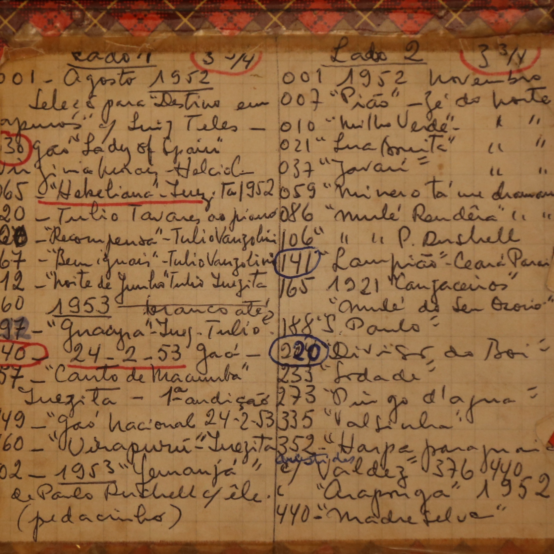 Lado 1 3 3/4
001 - Agosto 1952
Seleção para "Destino em
apuros" c/ Luiz Teles -
30 gaó "Lady of Spain"
065 - "Hekeliana" - Inezita 1952
20 - Tulio Tavares ao piano
"Recompensa" - Tulio Vanzolini
67 - "Bem iguais" - Tulio Vanzolini
12 - "Noite de Junho" Tulio Inezita
60 1953 branco até
97 - "Guacyra" - Inez. - Tulio
40 - 24-2-53 Gaó -
57 - "Canto de Macumba"
Inezita - 1ª audição
49 - "Gaó Nacional 24-2-53
60 - "Uirapurú" - Inezita
02 - 1953 "Yemanjá"
de Paulo Ruschell c/ êle.
(pedacinho)
Lado 2 3 3/4
001 1952 Novembro
007 "Pião" - Zé do Norte
010 - "Milho Verde" - " "
021 "Lua Bonita" " "
037 "Jovani" " "
059 "Mineiro tá me chamando
086 "Mulé Rendêra" " "
106 " " P. Ruschell
141 Lampião - Ceará
165 1921 "Cangaceiros"
"Mulé do Seu Ozorio"
188 "S. Paulo"
220 "Divisor do Boi"
235 "Sodade"
273 "Pingo d'agua"
335 "Valsinha"
352 - "Harpa paraguaia
c/ Valdez" 376 440
"Araponga" 1952
440 - "Madreselva"